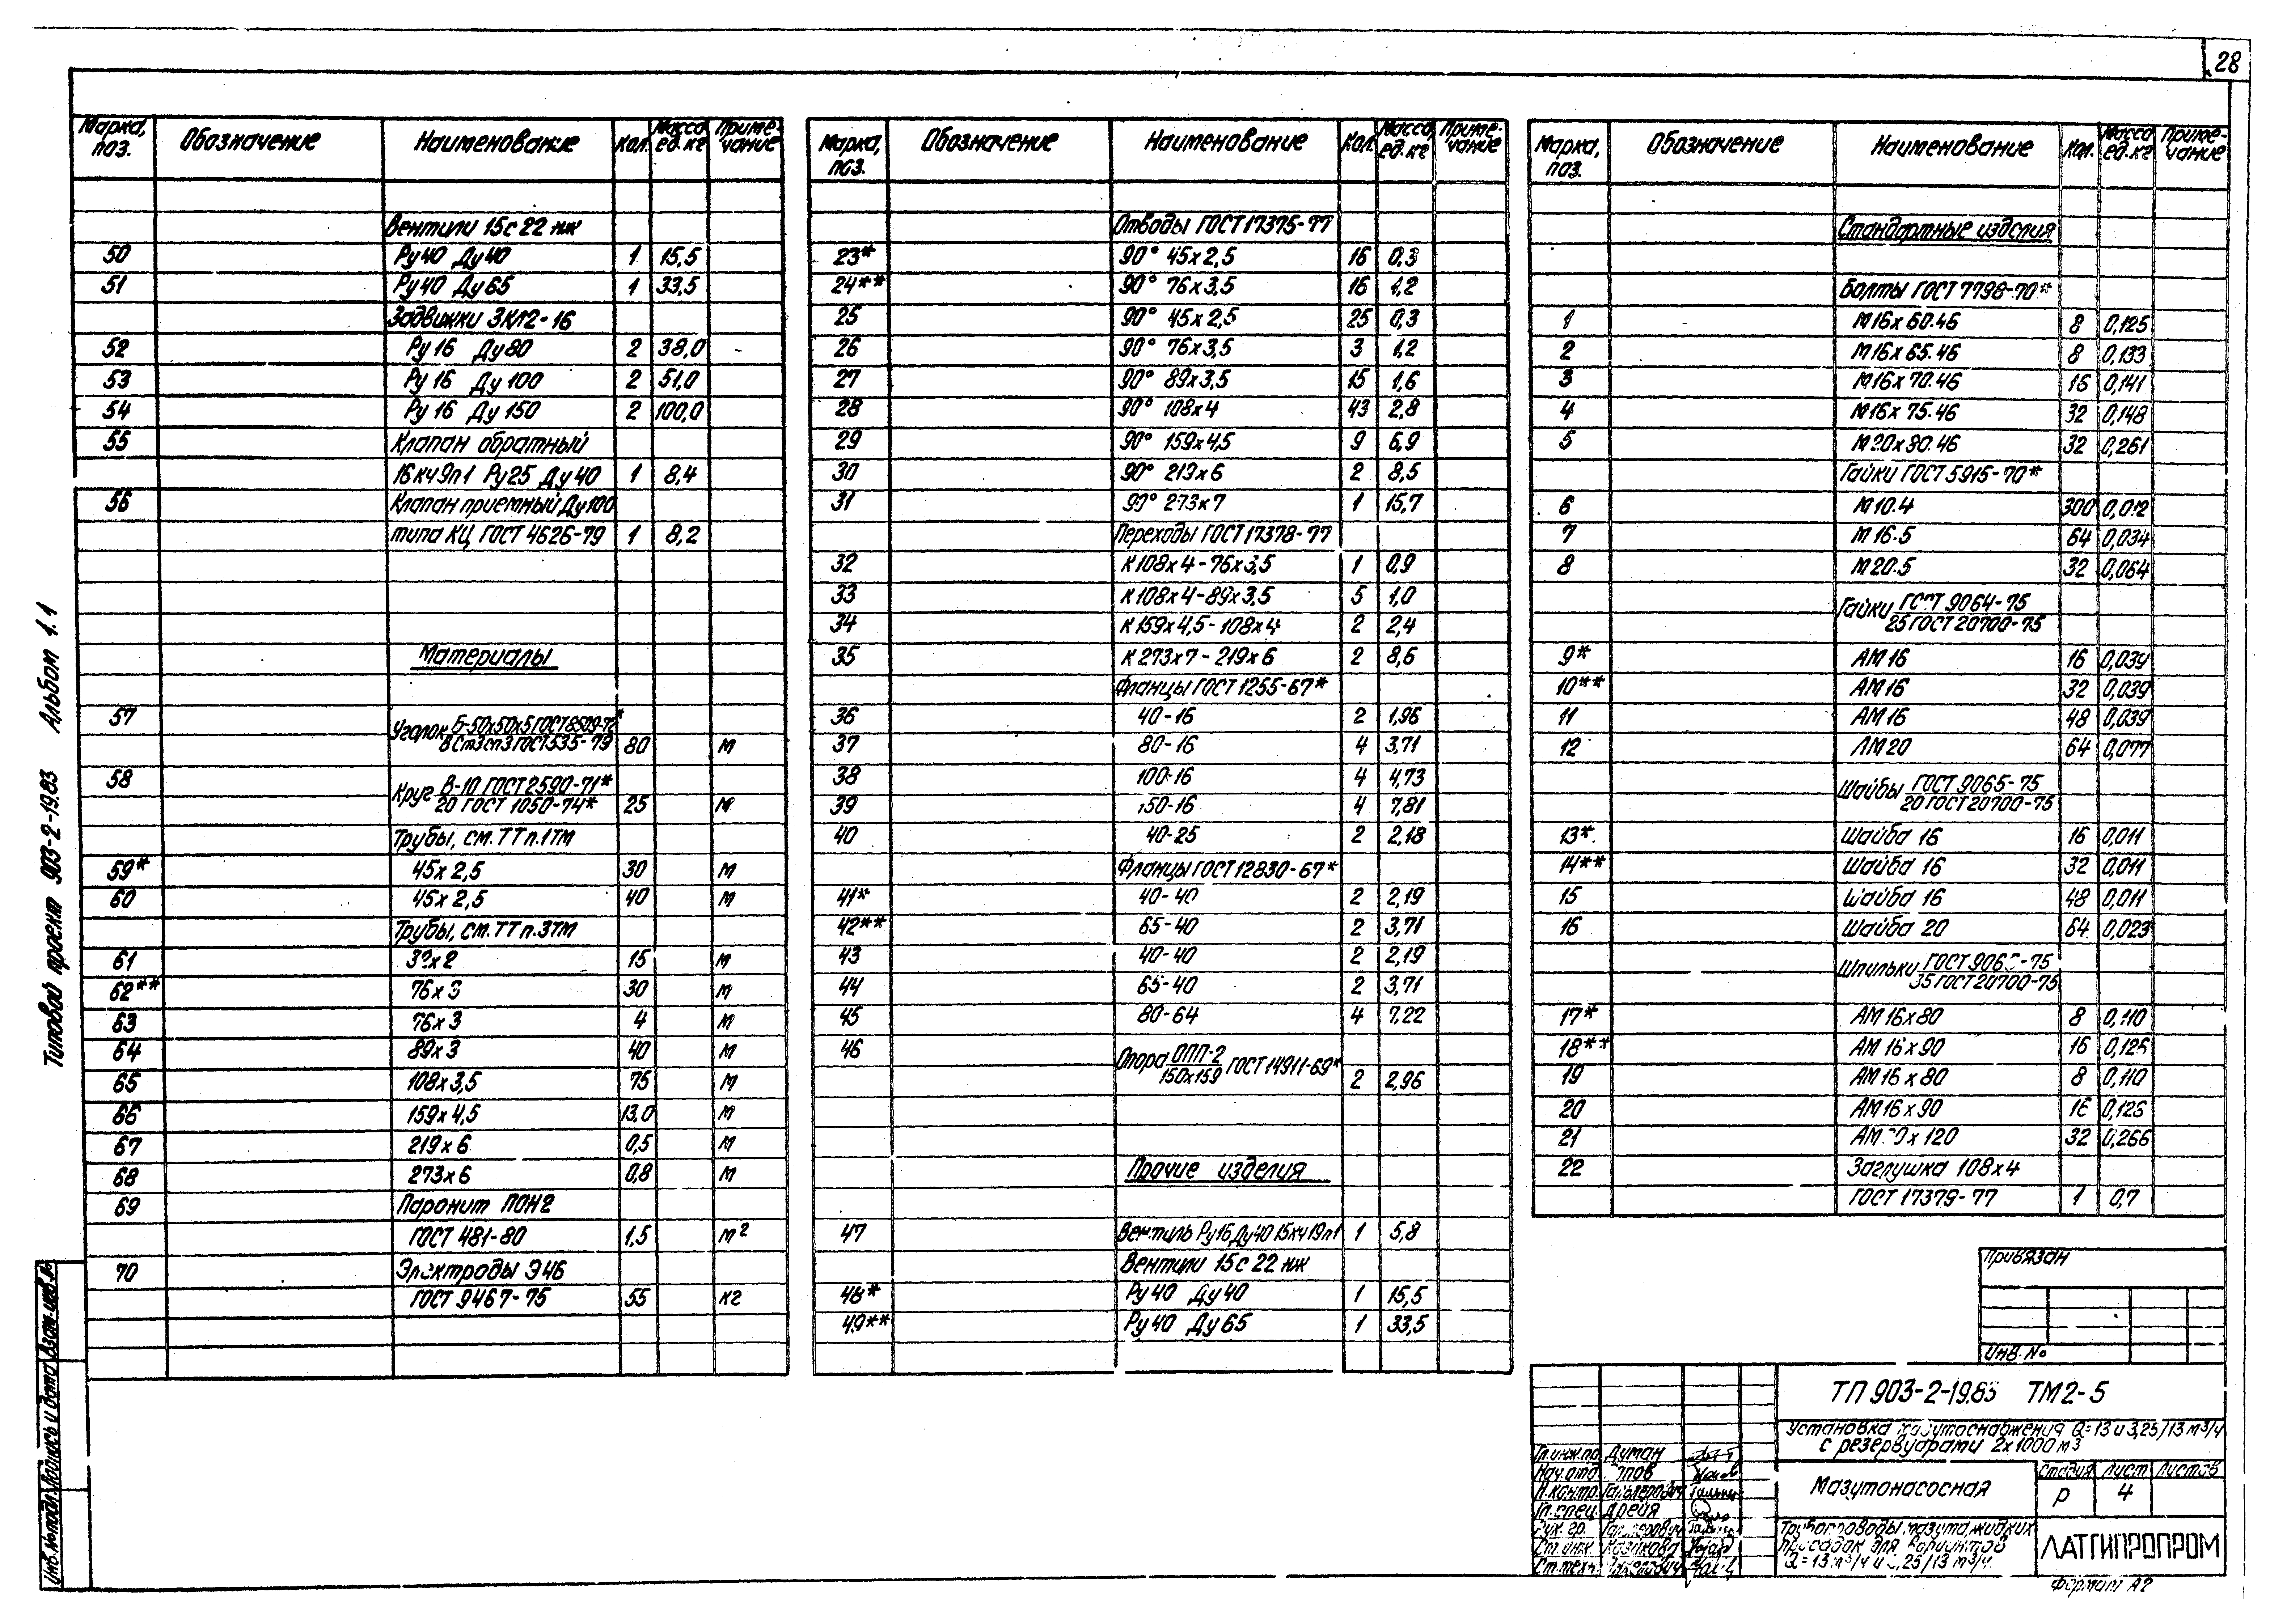 28
Марка, поз. Обозначение Наименование Кол. Масса ед. кг Приме-чание
Вентили 15с22нж
50 Ру40 Ду40 1 15,5
51 Ру40 Ду65 1 33,5
Задвижки ЗКЛ2-16
52 Ру16 Ду80 2 38,0
53 Ру16 Ду100 2 51,0
54 Ру16 Ду150 2 100,0
55 Клапан обратный
16кч9п1 Ру25 Ду40 1 8,4
56 Клапан приемный Ду100
типа КЦ ГОСТ 4626-79 1 8,2
Материалы
57 Уголок Б-50х50х5 ГОСТ 8509-72*
ВСт3сп3 ГОСТ 535-79 80 м
58 Круг В-10 ГОСТ 2590-71*
20 ГОСТ 1050-74* 25 м
Трубы, см. ТТ п.1ТМ
59* 45х2,5 30 м
60 45х2,5 40 м
Трубы, см. ТТ п.3ТМ
61 х2 15 м
62** 76х3 30 м
63 76х3 4 м
64 89х3 40 м
65 108х3,5 75 м
66 159х4,5 13,0 м
67 219х6 0,5 м
68 273х6 0,8 м
69 Паронит ПОН2
ГОСТ 481-80 1,5 м²
70 Электроды Э46
ГОСТ 9467-75 55 кг
Марка, поз. Обозначение Наименование Кол. Масса ед. кг Приме-чание
Отводы ГОСТ 17375-77
23* 90° 45х2,5 16 0,3
24** 90° 76х3,5 16 1,2
25 90° 45х2,5 25 0,3
26 90° 76х3,5 3 1,2
27 90° 89х3,5 15 1,6
28 90° 108х4 43 2,8
29 90° 159х4,5 9 6,9
30 90° 219х6 2 8,5
31 90° 273х7 1 15,7
Переходы ГОСТ 17378-77
32 К108х4-76х3,5 1 0,9
33 К108х4-89х3,5 5 1,0
34 К159х4,5-108х4 2 2,4
35 К273х7-219х6 2 8,6
Фланцы ГОСТ 1255-67*
36 40-16 2 1,96
37 80-16 4 3,71
38 100-16 4 4,73
39 150-16 4 7,81
40 40-25 2 2,18
Фланцы ГОСТ 12830-67*
41* 40-40 2 2,19
42** 65-40 2 3,71
43 40-40 2 2,19
44 65-40 2 3,71
45 80-64 4 7,22
46 Опора ОПП-2
150х159 ГОСТ 14911-69* 2 2,96
Прочие изделия
47 Вентиль Ру16 Ду40 15кч19п1 1 5,8
Вентили 15с22нж
48* Ру40 Ду40 1 15,5
49** Ру40 Ду65 1 33,5
Марка, поз. Обозначение Наименование Кол. Масса ед. кг Приме-чание
Стандартные изделия
Болты ГОСТ 7798-70*
1 М16х60.46 8 0,125
2 М16х65.46 8 0,133
3 М16х70.46 16 0,141
4 М16х75.46 32 0,148
5 М20х80.46 32 0,261
Гайки ГОСТ 5915-70*
6 М10.4 300 0,012
7 М16.5 64 0,034
8 М20.5 32 0,064
Гайки ГОСТ 9064-75
25 ГОСТ 20700-75
9* АМ16 16 0,039
10** АМ16 32 0,039
11 АМ16 48 0,039
12 АМ20 64 0,077
Шайбы ГОСТ 9065-75
20 ГОСТ 20700-75
13* Шайба 16 16 0,011
14** Шайба 16 32 0,011
15 Шайба 16 48 0,011
16 Шайба 20 64 0,023
Шпильки ГОСТ -75
35 ГОСТ 20700-75
17* АМ16х80 8 0,110
18** АМ16х90 16 0,125
19 АМ16х80 8 0,110
20 АМ16х90 16 0,125
21 АМ20х120 32 0,266
22 Заглушка 108х4
ГОСТ 17379-77 1 0,7
Типовой проект 903-2-19.83 Альбом 1.1
Инв.№подл. Подпись и дата Взам.инв.№
Привязан
Инв. №
ТП 903-2-19.83 ТМ2-5
Установка мазутоснабжения Q=13 и 3,25/13 м³/ч
с резервуарами 2х1000м³
Гл.инж.пр. Думан
Нач.отд. Попов
Н.контр. Гальперович
Гл.спец. Дрейя
Рук. гр. Гальперович
Ст.инж. Казакова
Ст.техн.
Мазутонасосная
Стадия Лист Листов
Р 4
Трубопроводы мазута, жидких
присадок для вариантов
Q=13м³/ч и 3,25/13 м³/ч.
ЛАТГИПРОПРОМ
Формат А2